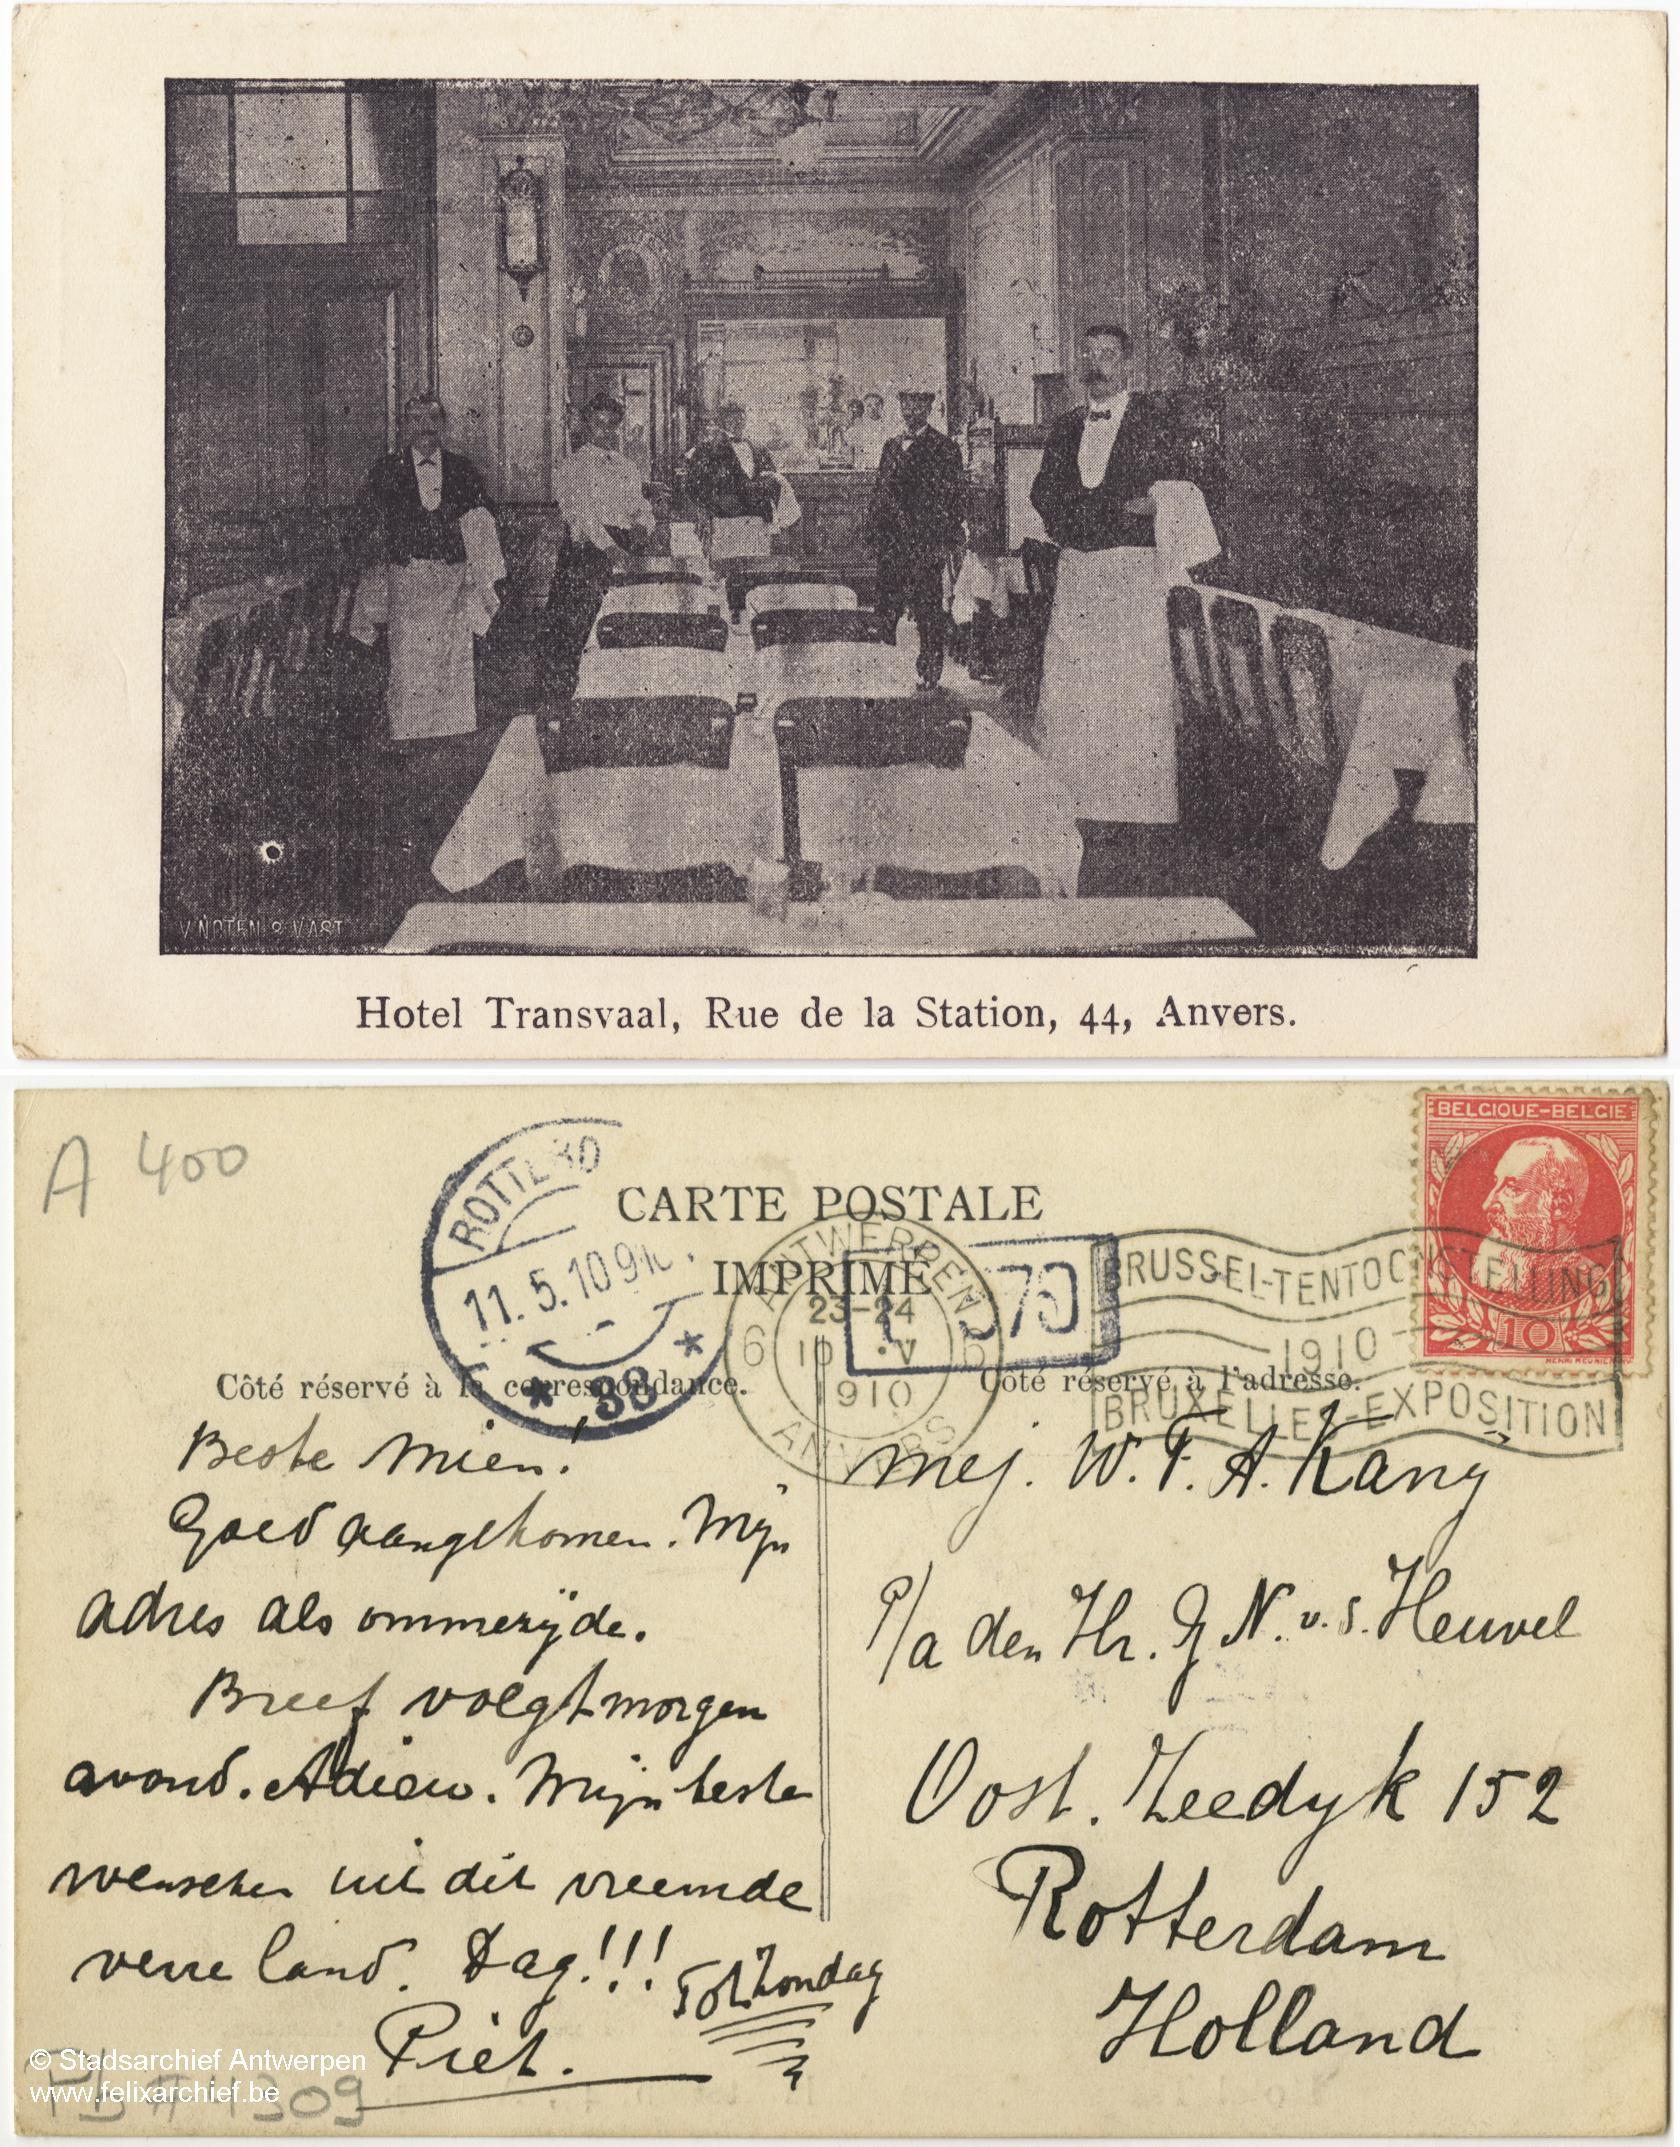 V.NOTEN & VAST
Hotel Transvaal, Rue de la Station, 44, Anvers.
A 400
CARTE POSTALE
IMPRIMÉ
BELGIQUE-BELGIE
10
HENRI MEUNIER INV.
ROTTERD
11.5.10 9
* 38 *
ANTWERPEN
23-24
6 10 ·V 6
1910
ANVERS
1 375
BRUSSEL-TENTOONSTELLING
1910
BRUXELLES-EXPOSITION
Côté réservé à la correspondance.
Beste Mien!
Goed aangekomen. Mijn
adres als ommezijde.
Breef volgt morgen
avond. Adieu. Mijn beste
wenschen uit dit vreemde
verre land. Dag!!! Tot Zondag
Piet.
Côté réservé à l'adresse.
Mej. W. F. A. Kany
P/a den Hr. G N. v. d. Heuvel
Oost. Zeedyk 152
Rotterdam
Holland
© Stadsarchief Antwerpen
www.felixarchief.be
PB # 4309